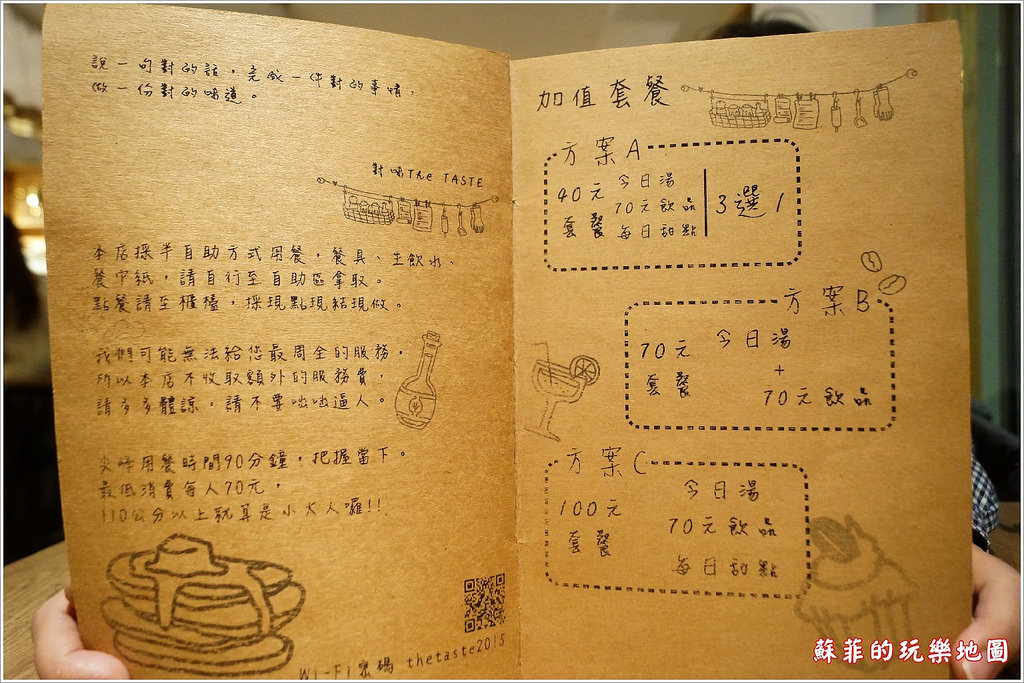 說一句對的話，完成一件對的事情，
做一份對的味道。
對味The TASTE
本店採半自助方式用餐，餐具、生飲水、
餐巾紙，請自行至自助區拿取。
點餐請至櫃檯，採現點現結現做。
我們可能無法給您最周全的服務，
所以本店不收取額外的服務費，
請多多體諒，請不要咄咄逼人。
尖峰用餐時間90分鐘，把握當下。
最低消費每人70元，
110公分以上就算是小大人囉!!
Wi-Fi密碼 thetaste2015
加值套餐
方案A
40元
套餐
今日湯
70元飲品
每日甜點
3選1
方案B
70元
套餐
今日湯
+
70元飲品
方案C
100元
套餐
今日湯
70元飲品
每日甜點
蘇菲的玩樂地圖